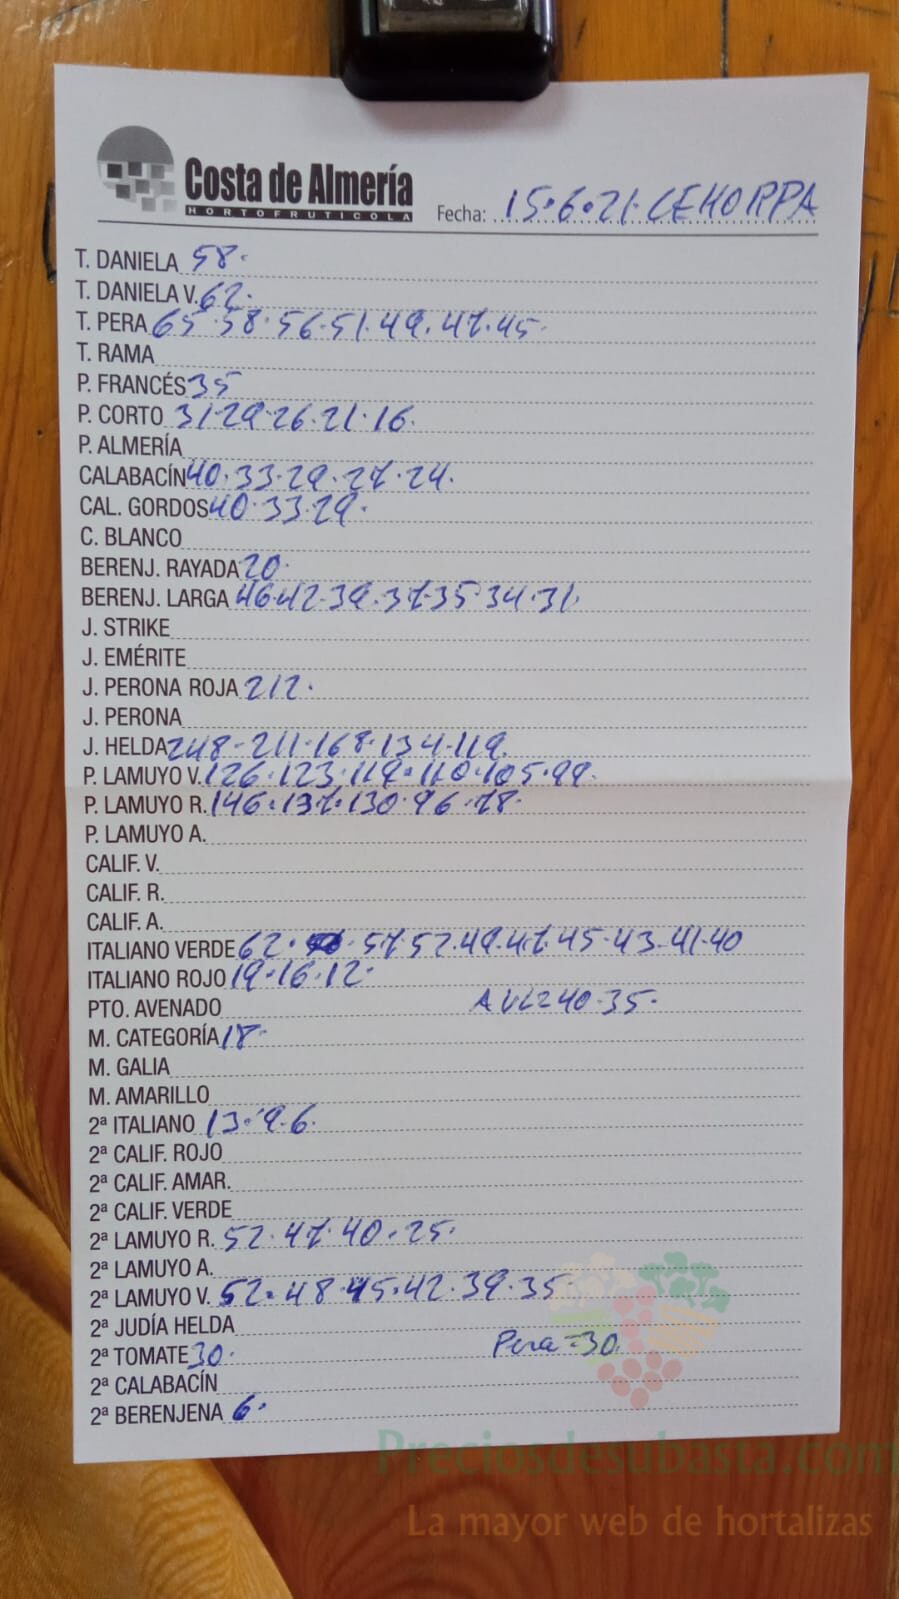 Costa de Almería
HORTOFRUTICOLA
Fecha: 15·6·21· CEHORPA
T. DANIELA 58·
T. DANIELA V. 62·
T. PERA 65·58·56·51·49·47·45·
T. RAMA
P. FRANCÉS 35
P. CORTO 31·29·26·21·16·
P. ALMERÍA
CALABACÍN 40·33·29·27·24·
CAL. GORDOS 40·33·29·
C. BLANCO
BERENJ. RAYADA 20·
BERENJ. LARGA 46·42·39·37·35·34·31·
J. STRIKE
J. EMÉRITE
J. PERONA ROJA 212·
J. PERONA
J. HELDA 248-211·168·134·119·
P. LAMUYO V. 126·123·119·110·105·99·
P. LAMUYO R. 146·137·130·96·78·
P. LAMUYO A.
CALIF. V.
CALIF. R.
CALIF. A.
ITALIANO VERDE 62· 57·52·49·47·45·43·41·40
ITALIANO ROJO 19·16·12·
PTO. AVENADO 40·35·
M. CATEGORÍA 18·
M. GALIA
M. AMARILLO
2ª ITALIANO 13·9·6·
2ª CALIF. ROJO
2ª CALIF. AMAR.
2ª CALIF. VERDE
2ª LAMUYO R. 52·47·40·25·
2ª LAMUYO A.
2ª LAMUYO V. 52·48·45·42·39·35·
2ª JUDÍA HELDA
2ª TOMATE 30· Pera=30
2ª CALABACÍN
2ª BERENJENA 6·
Preciosdesubasta.com
La mayor web de hortalizas